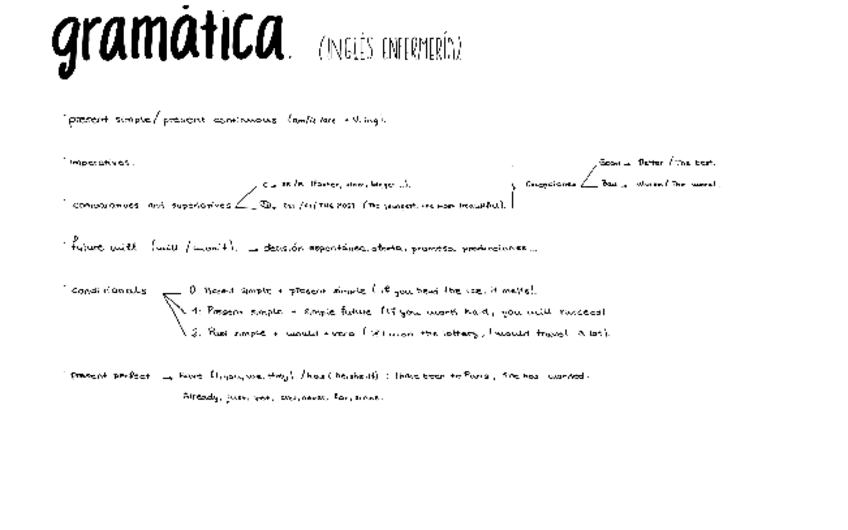 gramática. (INGLÉS ENFERMERÍA)
present simple/present continuous (am/is/are + V.ing).
imperatives.
comparatives and superlatives
C → ER/R
THE MOST (The youngest, the most beautiful).
Excepciones
Good → Better / The best.
Bad → Worse / The worst.
future will (will / won't). → decisión espontánea, oferta, promesa, predicciones...
conditionals
0. Present simple + present simple (if you heat the ice, it melts).
1. Present simple + simple future (if you work hard, you will succeed
2. Past simple + would + verb (if I won the lottery, I would travel a lot).
Present perfect → have (I, you, we, they) / has (he, she, it) : I have been to Paris, She has worked.
Already, just, yet, ever, never, for, since.